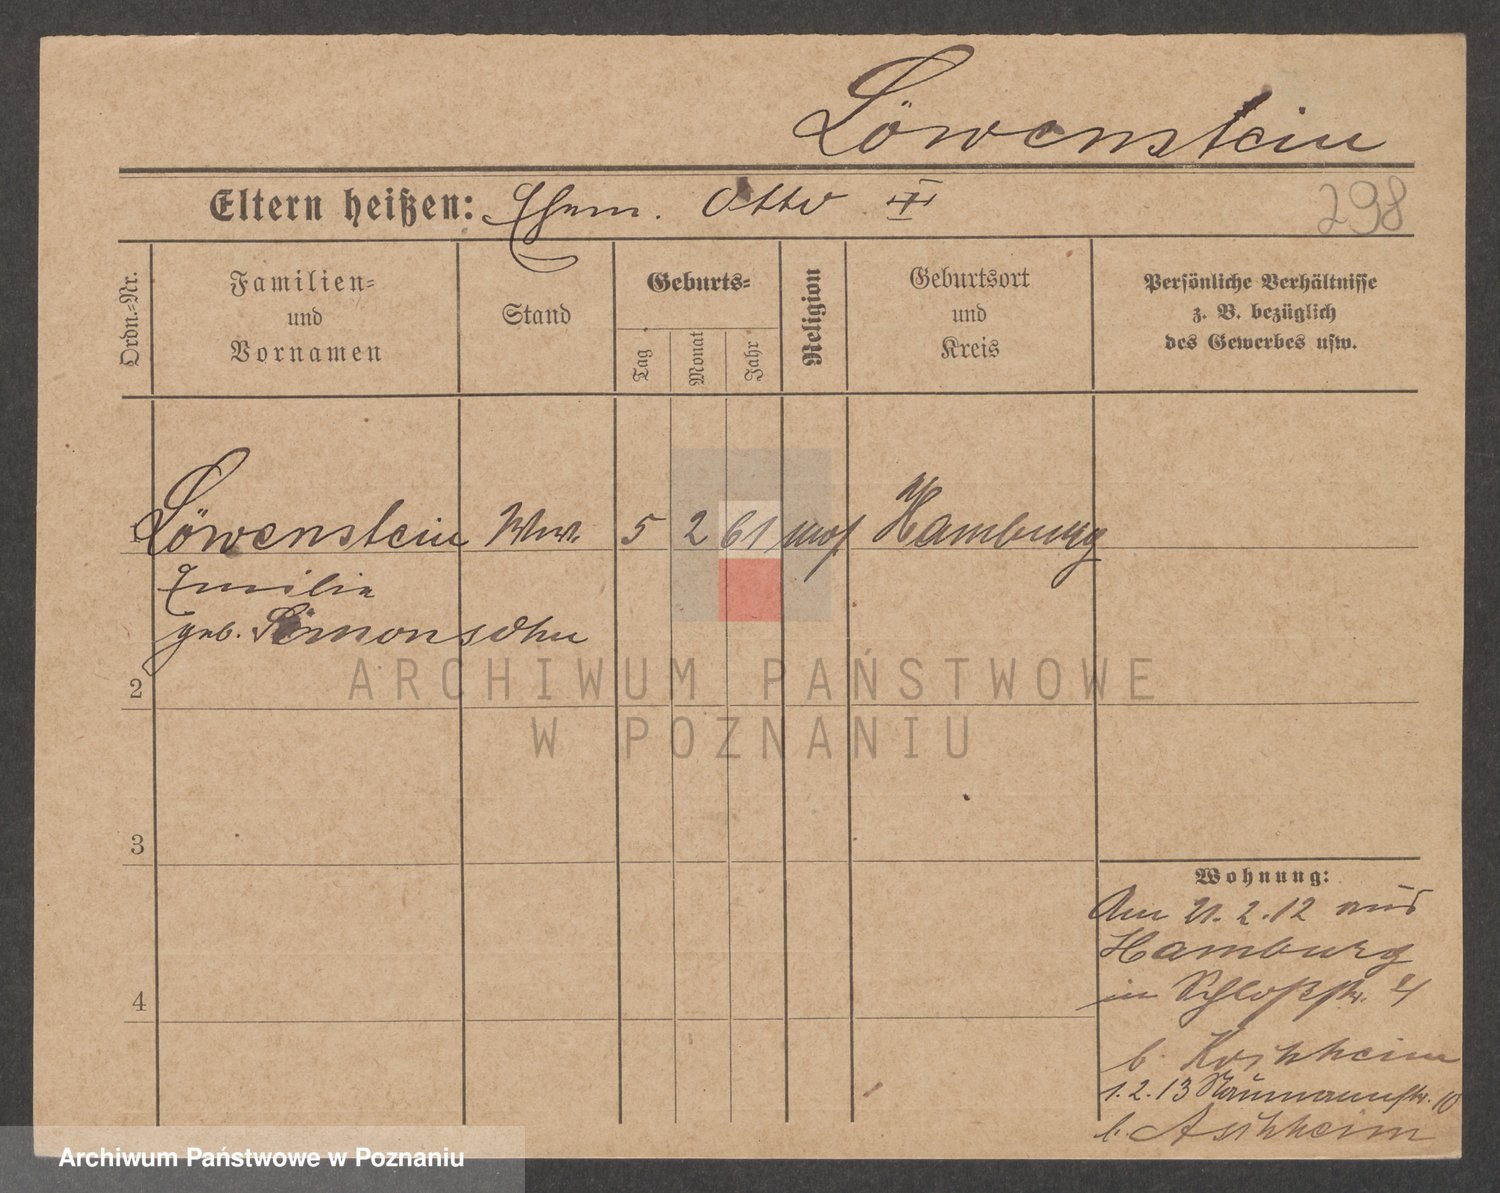 Löwenstein
Eltern heißen: Ehem. Otto
298
Ordn.-Nr.
Familien-
und
Vornamen
Stand
Geburts-
Tag
Monat
Jahr
Religion
Geburtsort
und
Kreis
Persönliche Verhältnisse
z. B. bezüglich
des Gewerbes usw.
Löwenstein Ww. 5 2 61 mos Hamburg
Emilie
geb. Simonsohn
2
ARCHIWUM PAŃSTWOWE
W POZNANIU
3
4
Wohnung:
Am 21.2.12 aus
Hamburg
in Schloßstr. 4
b.
1.2.13 Naumannstr. 10
b. Aschheim
Archiwum Państwowe w Poznaniu